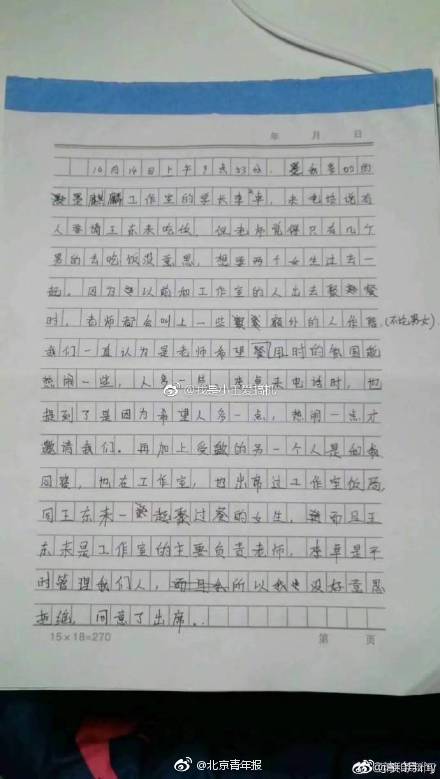 年 月 日
10月14日上午9点53分,是我参加的
墨麒麟工作室的学长李卓,来电话说有
人要请王东来吃饭,但老师觉得只有几个
男的去吃饭没意思,想要两个女生过去一
起。因为以前和工作室的人出去聚餐
时,老师都会叫上一些额外的人作陪,(不论男女)
我们一直认为是老师希望用时的氛围能
热闹一些,人多一点。李卓来电话时,也
提到了是因为希望人多一点,热闹一点才
邀请我们。再加上受邀的另一个人是和我
同寝,也在工作室,也出席过工作室饭局,
同王东来一起聚过餐的女生,而且王
东来是工作室的主要负责老师,李卓是平
时管理我们人,所以我没好意思
拒绝,同意了出席。
15×18=270 第 页
@我是小王爱搞机
@北京青年报